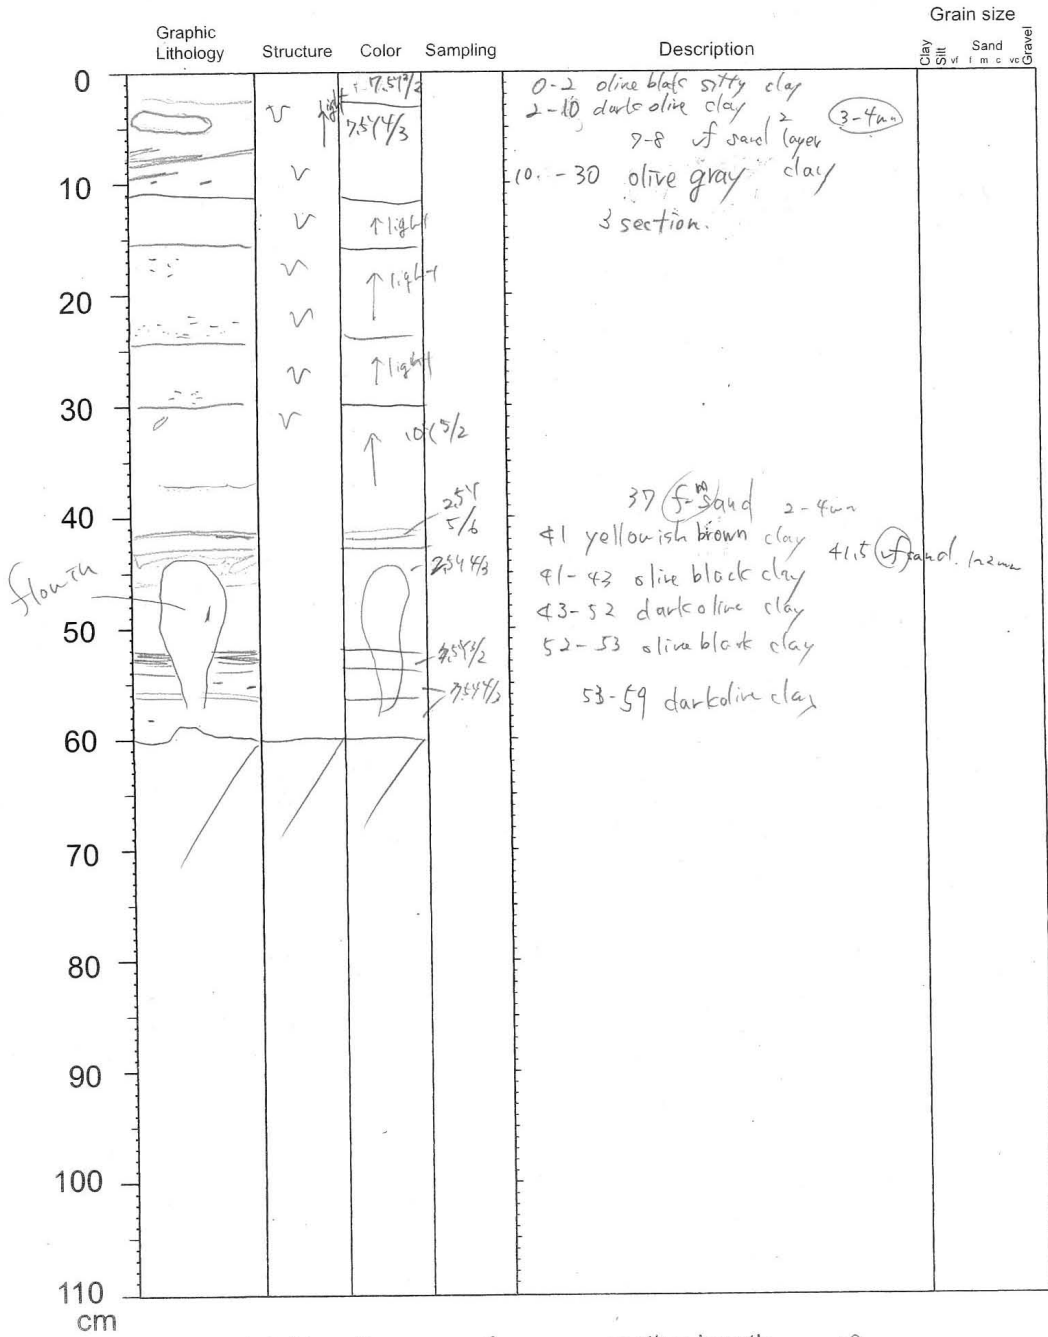 Graphic Lithology Structure Color Sampling Description Grain size
Clay Silt vf f m c vc Gravel
Sand
0
10
20
30
40
50
60
70
80
90
100
110
cm
light
7.5Y 4/3
light
light
light
10Y 5/2
2.5Y
5/6
2.5Y 4/3
7.5Y 4/3
flow in
0-2 olive black silty clay
2-10 dark olive clay 3-4mm
7-8 vf sand 2 layer
10-30 olive gray clay
3 section.
37 f-m sand 2-4mm
41 yellowish brown clay 41.5 vf sand. 1-2mm
41-43 olive black clay
43-52 dark olive clay
52-53 olive black clay
53-59 dark olive clay